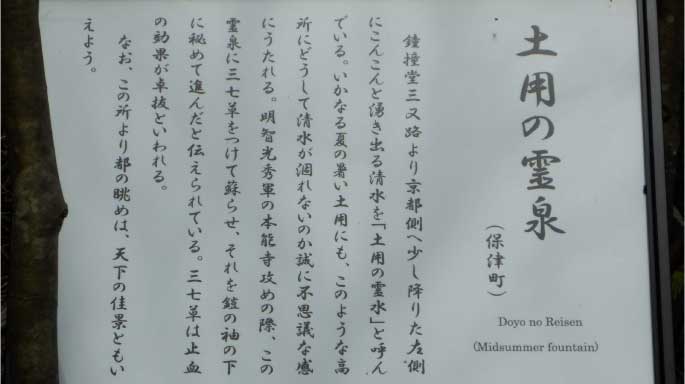 土用の霊泉
（保津町）
Doyo no Reisen
(Midsummer fountain)
鐘撞堂三又路より京都側へ少し降りた左側
にこんこんと湧き出る清水を「土用の霊水」と呼ん
でいる。いかなる夏の暑い土用にも、このような高
所にどうして清水が涸れないのか誠に不思議な感
にうたれる。明智光秀軍の本能寺攻めの際、この
霊泉に三七草をつけて蘇らせ、それを鎧の袖の下
に秘めて進んだと伝えられている。三七草は止血
の効果が卓抜といわれる。
なお、この所より都の眺めは、天下の佳景ともい
えよう。